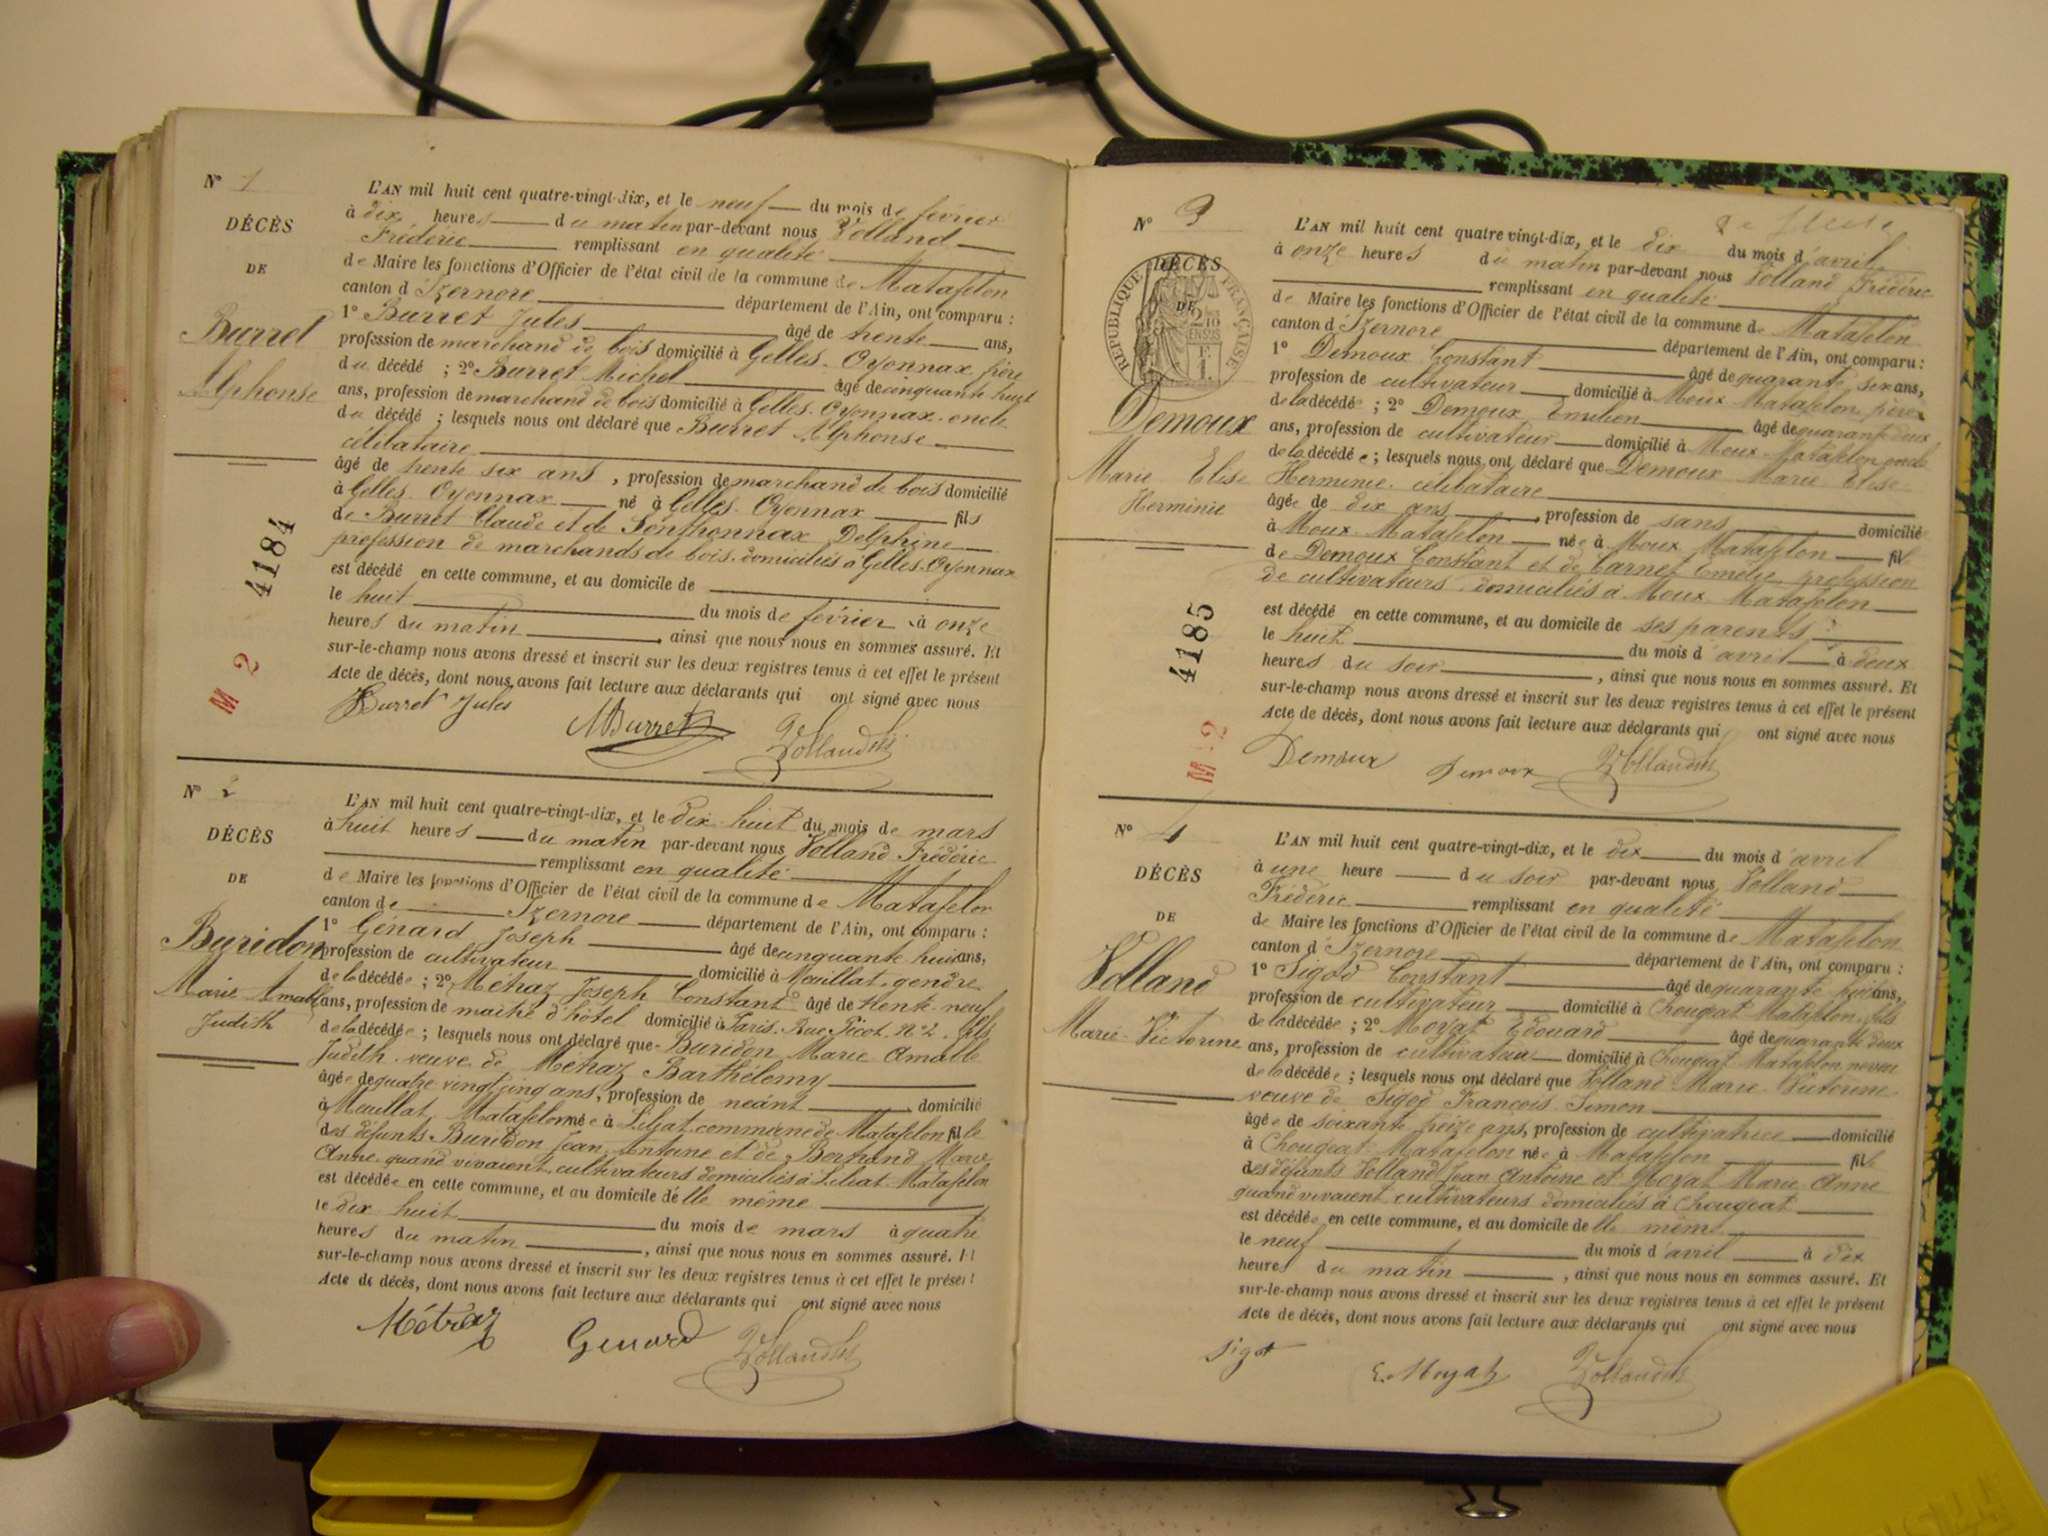 N° 1
DÉCÈS
DE
Burret
Alphonse
4184
M 2
L'AN mil huit cent quatre-vingt-dix, et le neuf du mois de février
à dix heures du matin par-devant nous Volland
Frédéric remplissant en qualité
de Maire les fonctions d'Officier de l'état civil de la commune de Matafelon
canton d'Izernore département de l'Ain, ont comparu :
1° Burret Jules âgé de trente ans,
profession de marchand de bois domicilié à Gelles. Oyonnax frère
du décédé ; 2° Burret Michel âgé de cinquante huit
ans, profession de marchand de bois domicilié à Gelles. Oyonnax. oncle
du décédé ; lesquels nous ont déclaré que Burret Alphonse
célibataire
âgé de trente six ans, profession de marchand de bois domicilié
à Gelles. Oyonnax né à Gelles. Oyonnax fils
de Burret Claude et de Ponthonnax Delphine
profession de marchands de bois. domiciliés à Gelles. Oyonnax
est décédé en cette commune, et au domicile de
le huit du mois de février à onze
heures du matin, ainsi que nous nous en sommes assuré. Et
sur-le-champ nous avons dressé et inscrit sur les deux registres tenus à cet effet le présent
Acte de décès, dont nous avons fait lecture aux déclarants qui ont signé avec nous
Burret Jules MBurret Volland
N° 2
DÉCÈS
DE
Buridon
Marie Amalle
Judith
L'AN mil huit cent quatre-vingt-dix, et le dix huit du mois de mars
à huit heures du matin par-devant nous Volland Frédéric
remplissant en qualité
de Maire les fonctions d'Officier de l'état civil de la commune de Matafelon
canton de Izernore département de l'Ain, ont comparu :
1° Génard Joseph âgé de cinquante huit ans,
profession de cultivateur domicilié à Meuillat. gendre
de la décédée ; 2° Métraz Joseph Constant âgé de trente neuf
ans, profession de maître d'hôtel domicilié à Paris. Rue Picot. N. 2. fils
de la décédée ; lesquels nous ont déclaré que Buridon Marie Amalle
Judith. veuve de Métraz Barthélemy
âgée de quatre vingt cinq ans, profession de néant domicilié
à Meuillat Matafelon née à Leliat. commune de Matafelon fille
des défunts Buridon Jean Antoine et de Berthand Marie
Anne quand vivaient cultivateurs domiciliés à Leliat. Matafelon
est décédée en cette commune, et au domicile d'elle même
le dix huit du mois de mars à quatre
heures du matin, ainsi que nous nous en sommes assuré. Et
sur-le-champ nous avons dressé et inscrit sur les deux registres tenus à cet effet le présent
Acte de décès, dont nous avons fait lecture aux déclarants qui ont signé avec nous
Métraz Genard Volland
N° 3
DÉCÈS
DE
RÉPUBLIQUE FRANÇAISE
2/10 EN SUS
Demoux
Marie Elise
Herminie
4185
M 2
L'AN mil huit cent quatre vingt-dix, et le dix du mois d'avril
à onze heures du matin par-devant nous Volland Frédéric
remplissant en qualité
de Maire les fonctions d'Officier de l'état civil de la commune de Matafelon
canton d'Izernore département de l'Ain, ont comparu :
1° Demoux Constant âgé de quarante six ans,
profession de cultivateur domicilié à Moux Matafelon père
de la décédée ; 2° Demoux Emilien âgé de quarante deux
ans, profession de cultivateur domicilié à Moux. Matafelon oncle
de la décédée ; lesquels nous ont déclaré que Demoux Marie Elise
Herminie célibataire
âgée de dix ans, profession de sans domicilié
à Moux. Matafelon née à Moux. Matafelon fille
de Demoux Constant et de Carnet Emélie profession
de cultivateurs. domiciliés à Moux Matafelon
est décédé en cette commune, et au domicile de ses parents
le huit du mois d'avril à deux
heures du soir, ainsi que nous nous en sommes assuré. Et
sur-le-champ nous avons dressé et inscrit sur les deux registres tenus à cet effet le présent
Acte de décès, dont nous avons fait lecture aux déclarants qui ont signé avec nous
Demoux Demoux Volland
N° 4
DÉCÈS
DE
Volland
Marie-Victorine
L'AN mil huit cent quatre-vingt-dix, et le dix du mois d'avril
à une heure du soir par-devant nous Volland
Frédéric remplissant en qualité
de Maire les fonctions d'Officier de l'état civil de la commune de Matafelon
canton d'Izernore département de l'Ain, ont comparu :
1° Sigod Constant âgé de quarante huit ans,
profession de cultivateur domicilié à Chougeat Matafelon. fils
de la décédée ; 2° Moyat Edouard âgé de quarante deux
ans, profession de cultivateur domicilié à Chougeat Matafelon neveu
de la décédée ; lesquels nous ont déclaré que Volland Marie Victorine
veuve de Sigod François Simon
âgée de soixante treize ans, profession de cultivatrice domicilié
à Chougeat Matafelon née à Matafelon fille
des défunts Volland Jean Antoine et Moyat Marie Anne
quand vivaient cultivateurs domiciliés à Chougeat
est décédée en cette commune, et au domicile d'elle même
le neuf du mois d'avril à dix
heures du matin, ainsi que nous nous en sommes assuré. Et
sur-le-champ nous avons dressé et inscrit sur les deux registres tenus à cet effet le présent
Acte de décès, dont nous avons fait lecture aux déclarants qui ont signé avec nous
Sigot E. Moyat Volland